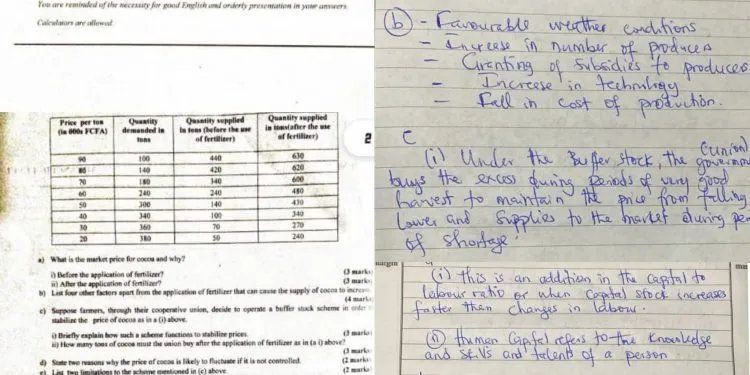 You are reminded of the necessity for good English and orderly presentation in your answers.
Calculators are allowed.
2
Price per ton (in 000s FCFA) Quantity demanded in tons Quantity supplied in tons (before the use of fertilizer) Quantity supplied in tons(after the use of fertilizer)
90 100 440 630
80 140 420 620
70 180 340 600
60 240 240 480
50 300 140 430
40 340 100 340
30 360 70 270
20 380 50 240
a) What is the market price for cocoa and why?
i) Before the application of fertilizer? (3 marks
ii) After the application of fertilizer? (3 marks
b) List four other factors apart from the application of fertilizer that can cause the supply of cocoa to increase
(4 marks
c) Suppose farmers, through their cooperative union, decide to operate a buffer stock scheme in order
stabilize the price of cocoa as in (a i) above.
i) Briefly explain how such a scheme functions to stabilize prices. (3 marks
ii) How many tons of cocoa must the union buy after the application of fertilizer as in (a i) above?
(3 marks
d) State two reasons why the price of cocoa is likely to fluctuate if it is not controlled. (2 marks
e) List two limitations to the scheme mentioned in (c) above. (2 marks
(b) - Favourable weather conditions
- Increase in number of producers
- Granting of subsidies to producers
- Increase in technology
- Fall in cost of production.
C
(union)
(i) Under the Buffer stock, the governmen
buys the excess during periods of very good
harvest to maintain the price from falling
lower and supplies to the market during pe
of shortage.
margin
(i) this is an addition in the capital to
labour ratio or when capital stock increases
faster than changes in labour.
(ii) Human Capital refers to the knowledge
and skills and talents of a person